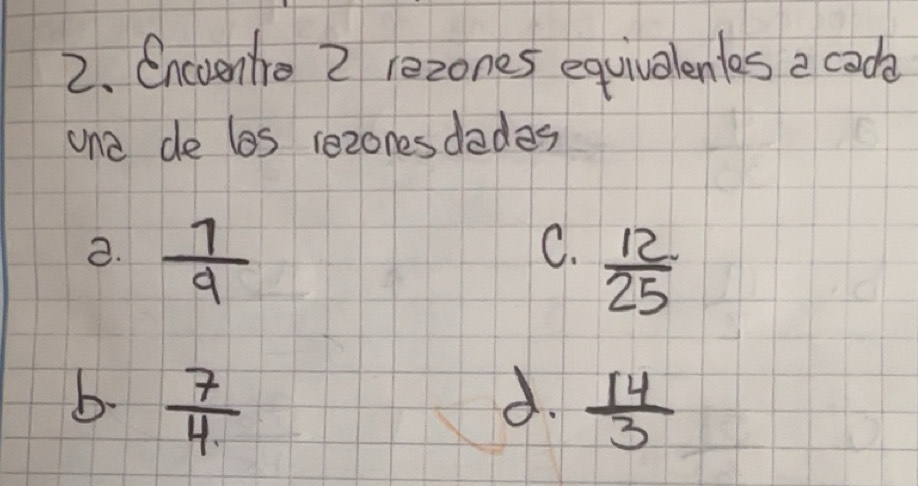 2. Encuentra 2 razones equivalentes a cada
una de las razones dadas
a. 1/9
c. 12/25
b. 7/4.
d. 14/3